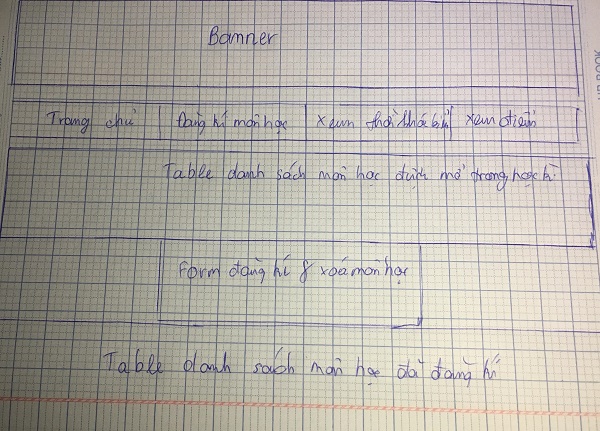 Banner
Trang chủ Đăng kí môn học Xem thời khóa biểu Xem điểm
Table danh sách môn học được mở trong học kì
Form đăng kí & xoá môn học
Table danh sách môn học đã đăng kí